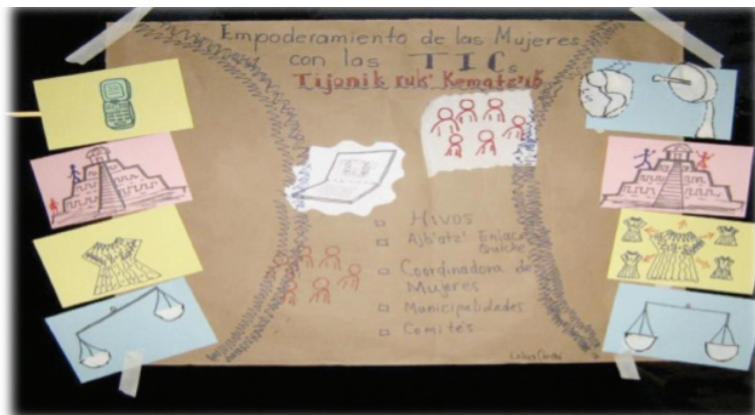 Empoderamiento de las Mujeres
con las TICs
Tijonik ruk' Kematz'ib
□ Hivos
□ Ajb'atz' Enlace
Quiche
□ Coordinadora de
Mujeres
□ Municipalidades
□ Comités